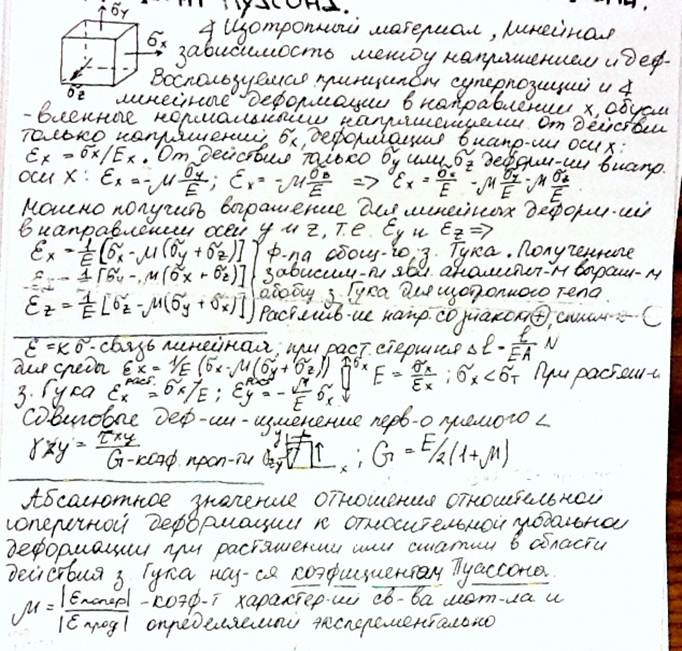 ПУАССОНА.
σy
∢ Изотропный материал, линейная
σx зависимость между напряжением и деф-
Воспользуемся принципом суперпозиций и ∢
σz линейные деформации в направлении x, обусл-
-вленные нормальными напряжениями. От действи
только напряжений σx, деформация в напр-ии оси x:
Ɛx = σx/Ex. От действия только σy или σz деформ-ии в напр.
оси x: Ɛx = -μ σy/E; Ɛx = -μ σz/E => Ɛx = σx/E - μ σy/E - μ σz/E
Можно получить выражение для линейных деформ-ий
в направлении осей y и z, т.е. Ɛy и Ɛz =>
Ɛx = 1/E [σx - μ(σy + σz)] ф-ла обощ-го, з. Гука. Полученные
1/E [σy - μ(σx + σz)] зависим-ти явл. аналитич-м выраж-м
Ɛz = 1/E [σz - μ(σy + σx)] обобщ з. Гука для изотропного тела.
Растягив-ие напр. со знаком ⊕,
Ɛ = kσ - связь линейная, при раст. стержня Δl = l/EA N
для среды Ɛx = 1/E (σx - μ(σy + σz)) E = σx/Ɛx; σx < σт При растяж-и
з. Гука Ɛx^раст = σx/E; Ɛy^раст = -μ/E σx
Сдвиговые деф-ии - изменение перв-о прямого ∠
γxy = τxy/G - коэф. проп-ти y x; G = E/2(1+μ)
Абсолютное значение отношения относительной
поперечной деформации к относительной продольной
деформации при растяжении или сжатии в области
действия з. Гука наз-ся коэфициентам Пуассона.
μ = |Ɛ попер|/|Ɛ прод| - коэф-т характер-ий св-ва мат-ла и
определяемый эксперементально